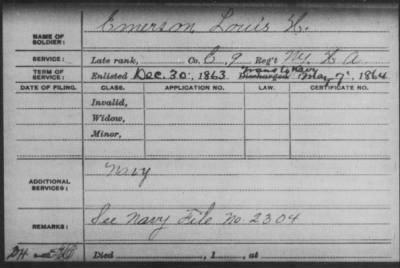 Emerson Louis H.
NAME OF SOLDIER:
SERVICE: Late rank, Co. E, 9 Reg't N.Y. H A
Trans to Navy
TERM OF SERVICE: Enlisted Dec. 30, 1863 Discharged May 7, 1864
DATE OF FILING. CLASS. APPLICATION NO. LAW. CERTIFICATE NO.
Invalid,
Widow,
Minor,
ADDITIONAL SERVICES: Navy
REMARKS: See Navy File No 2304
Died , 1 , at